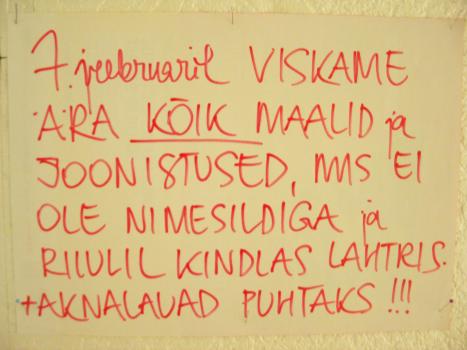 7. veebruaril VISKAME
ÄRA KÕIK MAALID ja
JOONISTUSED, MIS EI
OLE NIMESILDIGA ja
RIIULIL KINDLAS LAHTRIS.
+AKNALAUAD PUHTAKS !!!